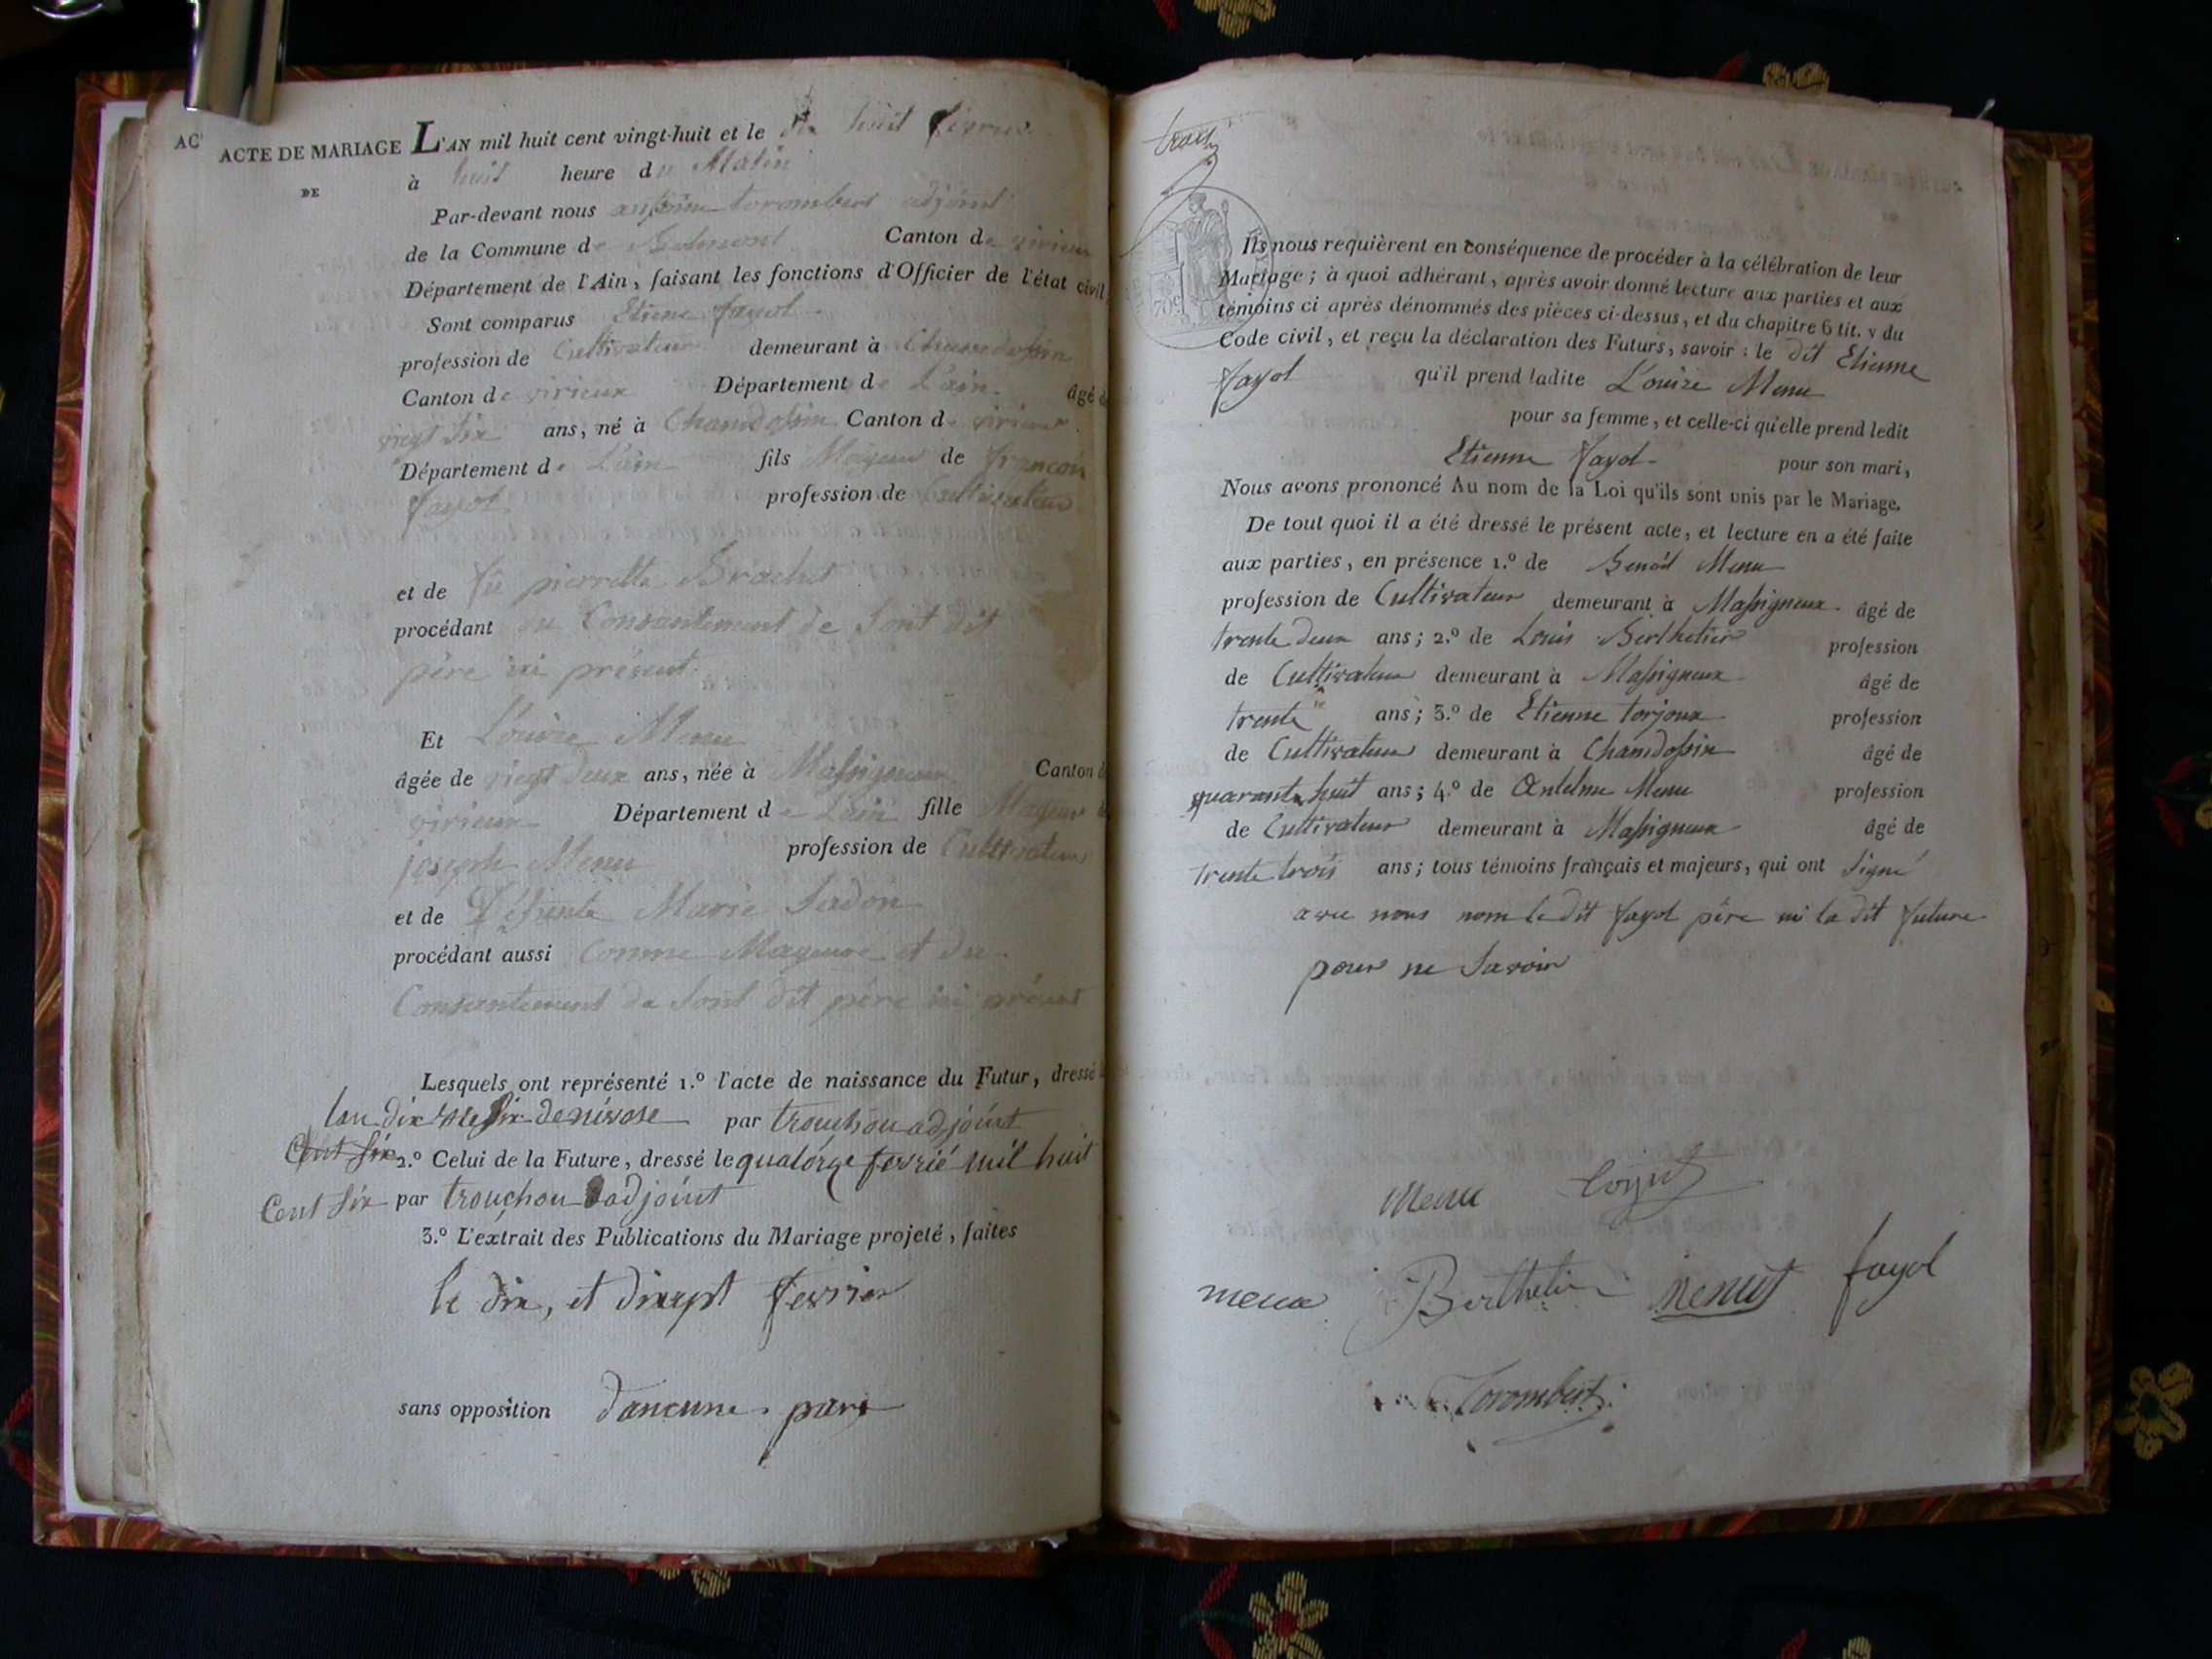 AC
ACTE DE MARIAGE L'AN mil huit cent vingt-huit et le dix huit fevrier
DE
à huit heure du Matin
Par-devant nous torombert adjoint
de la Commune de Belmont Canton de virieux
Département de l'Ain, faisant les fonctions d'Officier de l'état civil
Sont comparus Etiene fayol
profession de Cultivateur demeurant à Chamdossin
Canton de virieux Département de L'ain âgé d
vingt six ans, né à Chamdossin Canton de virieux
Département de L'ain fils Mayeur de francois
fayol profession de Cultivateur
et de feu pierrette Brachet
procédant du Consantement de Sont dit
père ici présent
Et Louise Menu
âgée de vingt deux ans, née à Massigneux Canton d
virieux Département de Lain fille Mayeure d
joseph Menu profession de Cultivateur
et de Défunte Marie
procédant aussi Comme Mayeure et du
Consantement de Sont dit père ici présent
Lesquels ont représenté 1.º l'acte de naissance du Futur, dressé l
lan dix le six denivose par trouchou adjoint
Cent six 2.º Celui de la Future, dressé le quatorze fevrié mil huit
Cent six par trouchou adjoint
3.º L'extrait des Publications du Mariage projeté, faites
le dix, et dixsept fevrier
sans opposition d'aucune part
Ils nous requièrent en conséquence de procéder à la célébration de leur
Mariage; à quoi adhérant, après avoir donné lecture aux parties et aux
témoins ci après dénommés des pièces ci-dessus, et du chapitre 6 tit. v du
Code civil, et reçu la déclaration des Futurs, savoir: le dit Etienne
fayol qu'il prend ladite L'ouise Menu
pour sa femme, et celle-ci qu'elle prend ledit
Etienne fayol pour son mari,
Nous avons prononcé Au nom de la Loi qu'ils sont unis par le Mariage.
De tout quoi il a été dressé le présent acte, et lecture en a été faite
aux parties, en présence 1.º de Benoît Menu
profession de Cultivateur demeurant à Massigneux âgé de
trente deux ans; 2.º de Louis Berthelier profession
de Cultivateur demeurant à Massigneux âgé de
trente ans; 3.º de Etienne torjoux profession
de Cultivateur demeurant à Chamdossin âgé de
quarante huit ans; 4.º de Antelme Menu profession
de Cultivateur demeurant à Massigneux âgé de
trente trois ans; tous témoins français et majeurs, qui ont Signé
avec nous nom le dit fayol père ni la dit future
pour ne Savoir
Menu
menu Berthelier menut fayol
Torombert